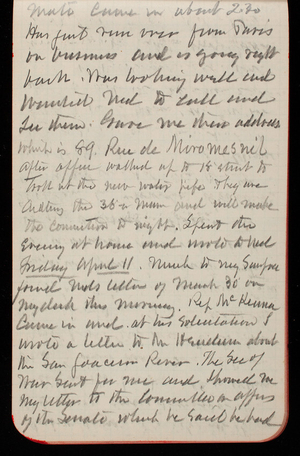 came in about 2:30
Has just run over from Paris
on business and is going right
back. Was looking well and
wanted Ned to call and
see them. Gave me their address
which is 89. Rue de Miromesnil
After office walked up to 18 street to
look at the new water pipe they are
the 36 in Main and will make
the connection to night. Spent the
Evening at home and wrote to Ned
Friday April 11. Much to my Surprise
found Neds letters of March 30 on
my desk this morning. Rep McKenna
Came in and at his Solicitation I
wrote a letter to Mr Henderson about
the San Joaquin River. The Sec of
War Sent for me and Showed me
my letter to the Committee on affairs
of the Senate which he said he had